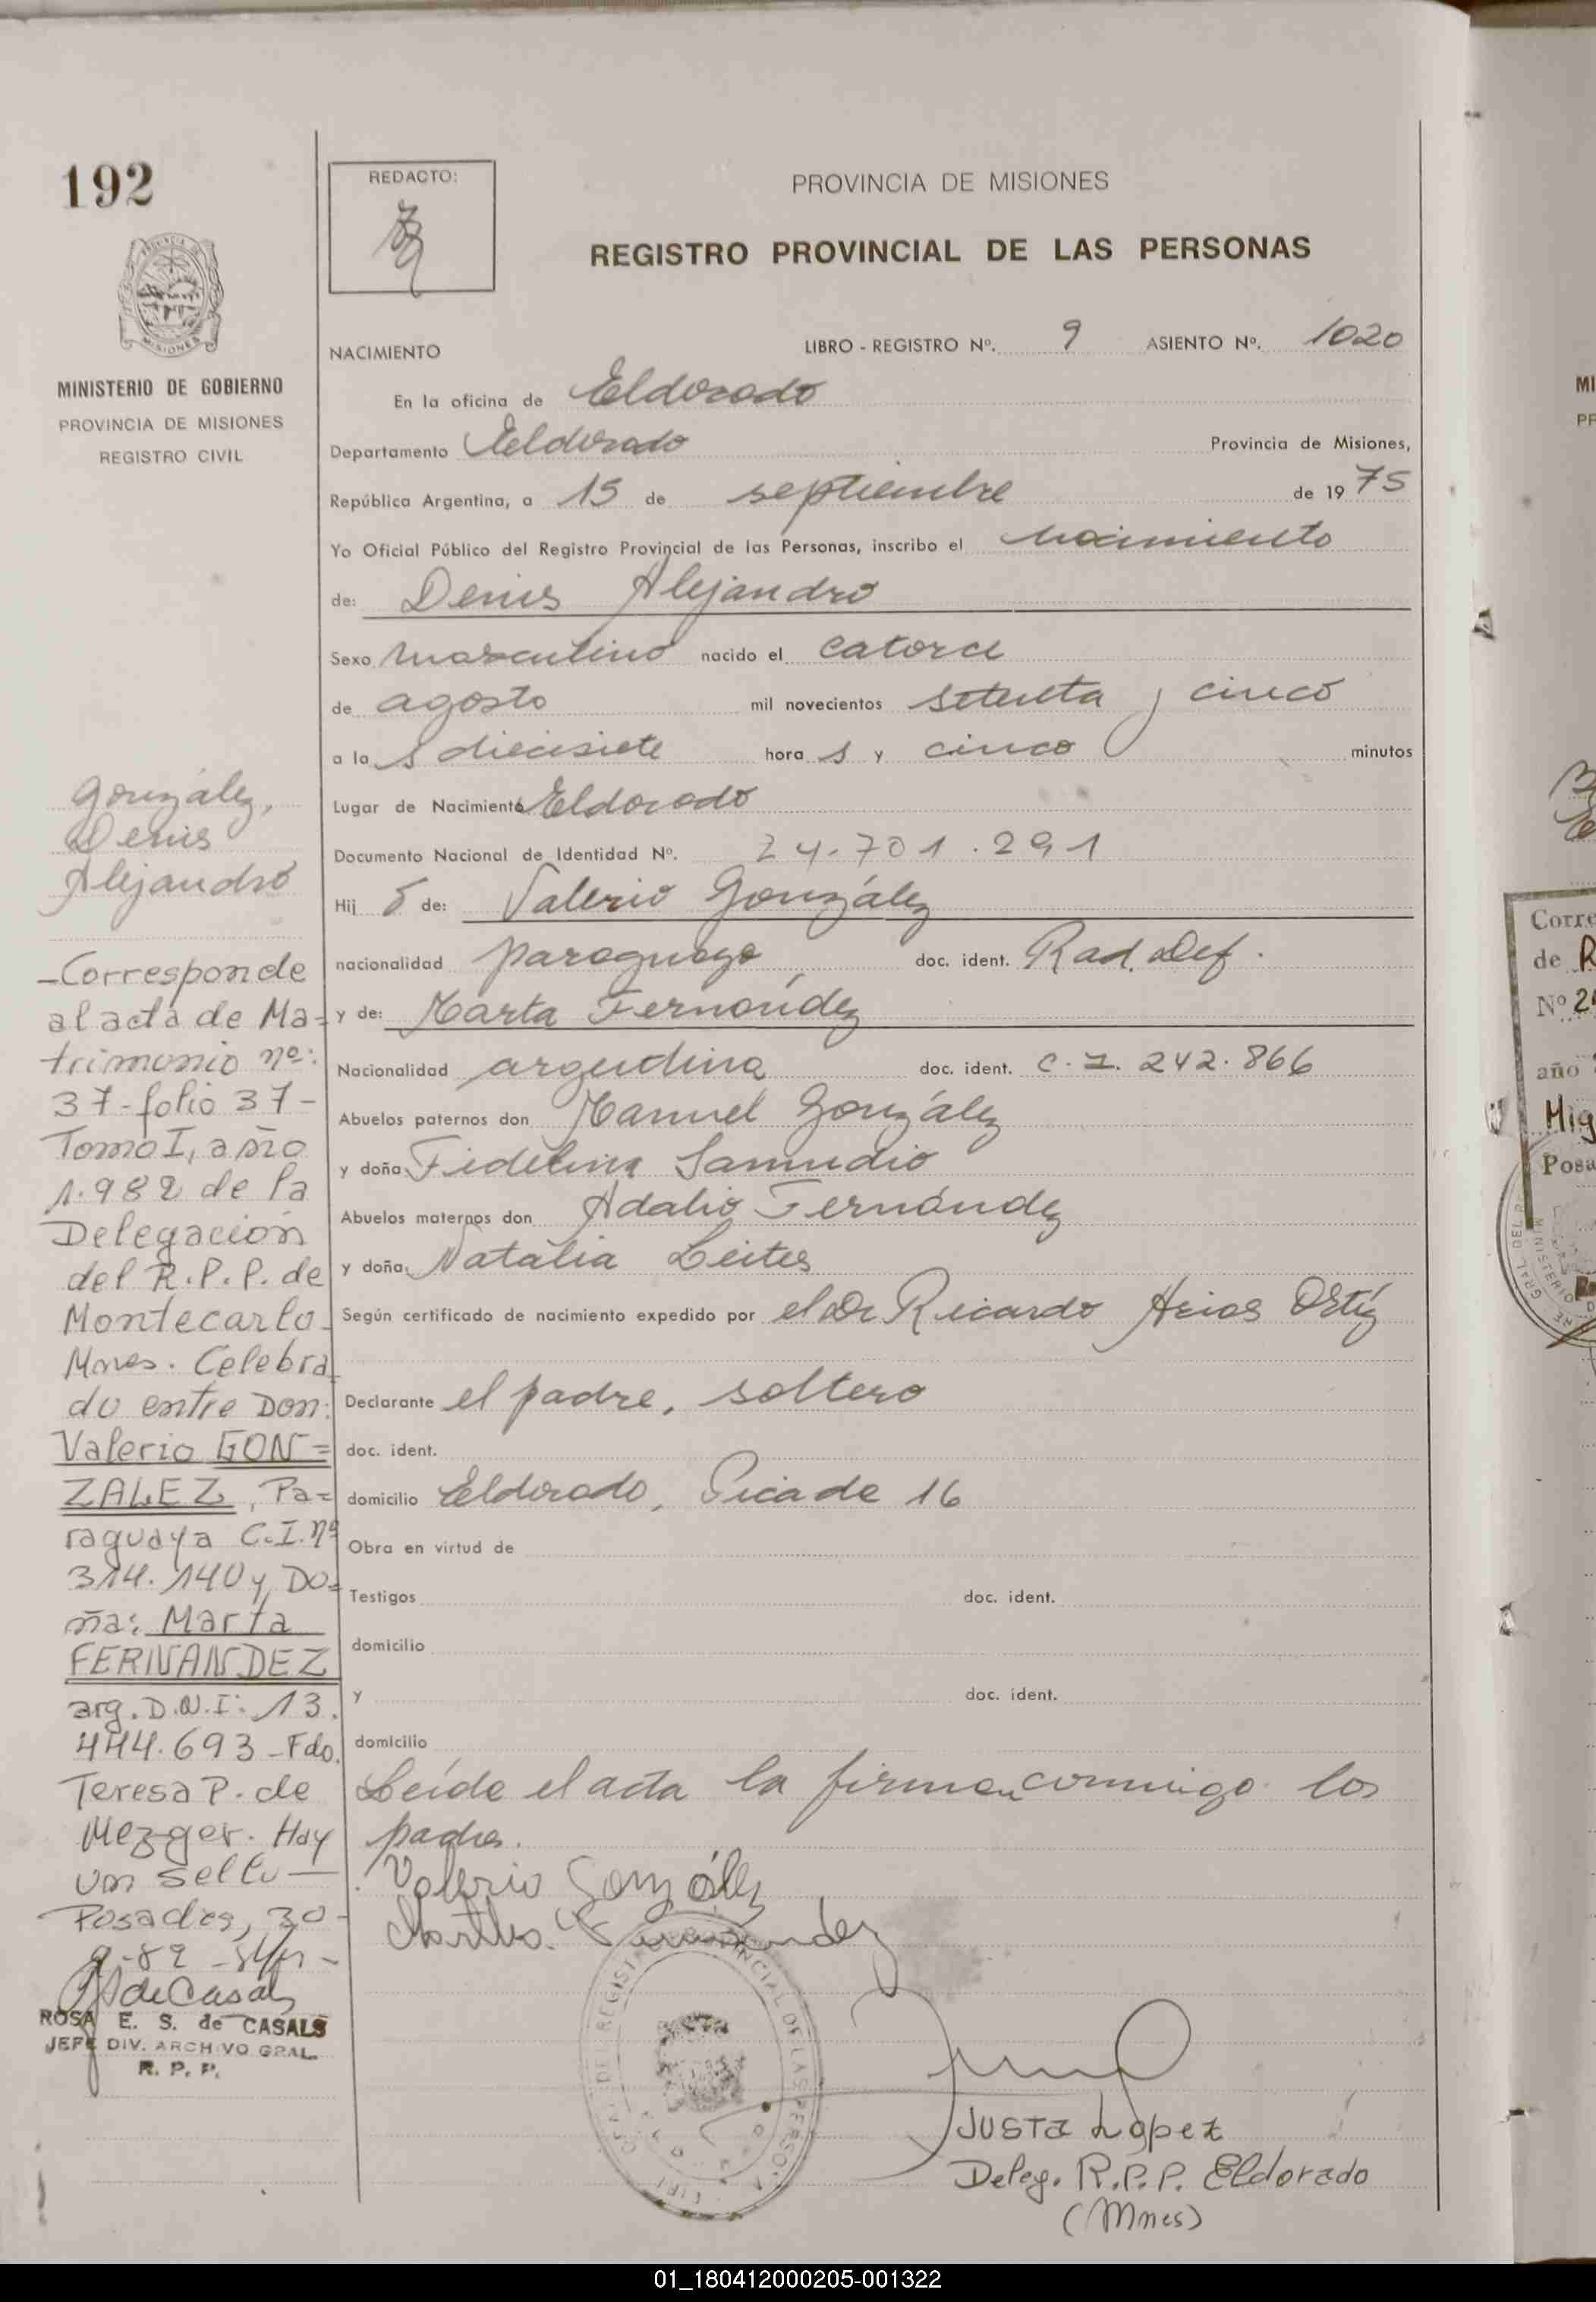 192
REDACTO:
PROVINCIA DE MISIONES
REGISTRO PROVINCIAL DE LAS PERSONAS
MISIONES
MINISTERIO DE GOBIERNO
PROVINCIA DE MISIONES
REGISTRO CIVIL
NACIMIENTO LIBRO - REGISTRO Nº. 9 ASIENTO Nº. 1020
En la oficina de Eldorado
Departamento Eldorado Provincia de Misiones,
República Argentina, a 15 de septiembre de 1975
Yo Oficial Público del Registro Provincial de las Personas, inscribo el nacimiento
de: Denis Alejandro
Sexo masculino nacido el catorce
de agosto mil novecientos setenta y cinco
a las diecisiete horas y cinco minutos
Lugar de Nacimiento Eldorado
Documento Nacional de Identidad Nº. 24.701.291
Hijo de: Valerio González
nacionalidad paraguaya doc. ident. Rad. Def.
y de: Marta Fernández
Nacionalidad argentina doc. ident. C.I. 242.866
Abuelos paternos don Manuel González
y doña Fidelina Samudio
Abuelos maternos don Adalio Fernández
y doña Natalia Leites
Según certificado de nacimiento expedido por el Dr Ricardo Arios Ortíz
Declarante el padre, soltero
doc. ident.
domicilio Eldorado, Picada 16
Obra en virtud de
Testigos doc. ident.
domicilio
y doc. ident.
domicilio
Leída el acta la firman conmigo los
padres.
Valerio González
Martha Fernandez
Justa López
Deleg. R.P.P. Eldorado
(Mnes)
González,
Denis
Alejandro
-Corresponde
al acta de Ma=
trimonio nº:
37-folio 37-
Tomo I, año
1.982 de la
Delegación
del R.P.P. de
Montecarlo-
Mnes. Celebra
do entre Don:
Valerio GON=
ZALEZ, Pa=
raguaya C.I. nº
314.140 y Do=
ña: Marta
FERNANDEZ
arg. D.N.I: 13.
444.693-Fdo.
Teresa P. de
Mezger. Hay
un sello—
Posadas, 30-
9-82
de Casals
ROSA E. S. de CASALS
JEFE DIV. ARCHIVO GRAL.
R. P. P.
Corre
de R
Nº 2
año
Mig
Posa
MI
PR
01_180412000205-001322